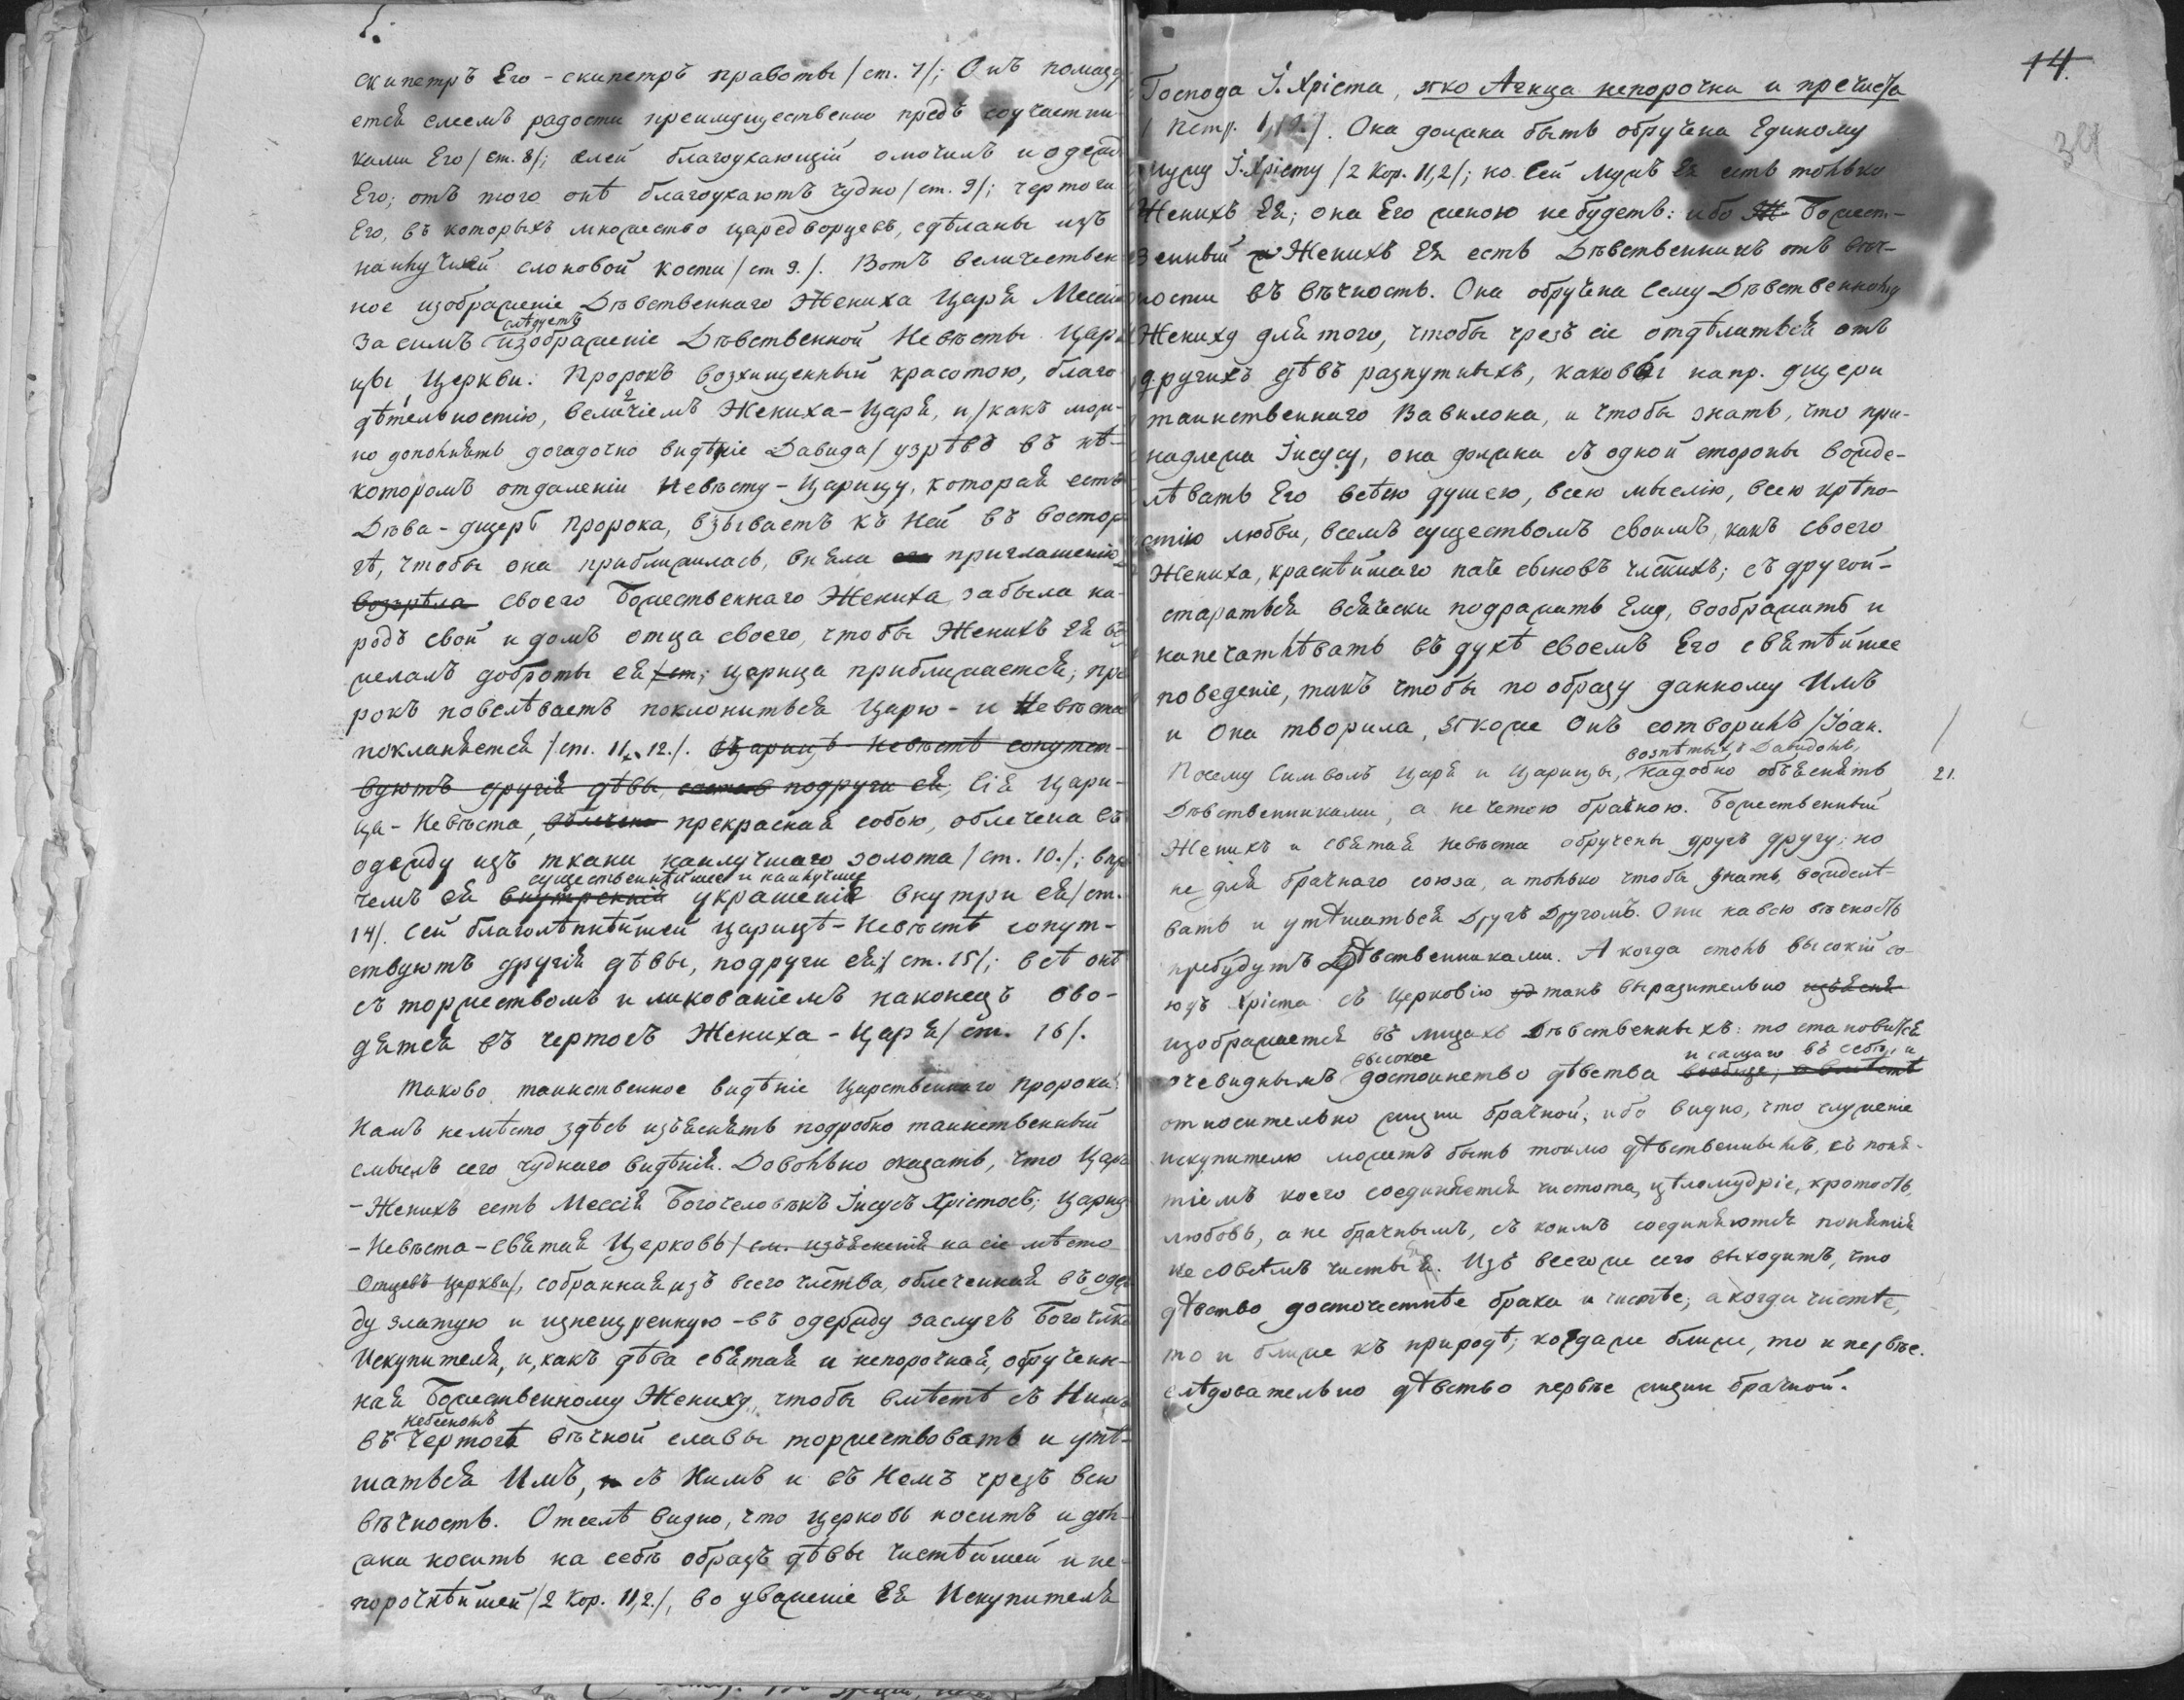 скипетръ Его - скипетръ правоты /ст. 7/; Онъ помазу
ется елеемъ радости преимущественно предъ соучастни-
ками Его /ст. 8/; елей благоухающій омочилъ и одежд
Его; отъ того онѣ благоухаютъ чудно /ст. 9/; чертоги
Его, въ которыхъ множество царедворцевъ, сдѣланы изъ
наилучшей слоновой кости /ст 9./. Вотъ величествен
ное изображеніе Дѣвственнаго Жениха Царя Мессіи
слѣдуетъ
За симъ изображеніе Дѣвственной Невѣсты Цари
цы Церкви. Пророкъ возхищенный красотою, благо
дѣтельностію, величіемъ Жениха-Царя, и /какъ мож-
но дополнять догадочно видѣніе Давида/ узрѣвъ въ нѣ-
которомъ отдаленіи Невѣсту-Царицу, которая есть
Дѣва-дщерь Пророка, взываетъ къ Ней въ востор
гѣ, чтобы она приблизилась, вняла приглашенію
возрѣла своего Божественнаго Жениха, забыла на-
родъ свой и домъ отца своего, чтобы Женихъ ея во
желалъ доброты ея /ст; Царица приближается; про
рокъ повелѣваетъ поклониться Царю - и Невѣста
покланяется /ст. 11, 12./. Царицѣ-Невѣстѣ сопутст-
вуютъ другія дѣвы, подруги ея, Сія Цари-
ца-Невѣста, прекрасная собою, облечена въ
одежду изъ ткани наилучшаго золота /ст. 10./; впро
существеннѣйшее и наилучшее
чемъ ея внутренній украшенія внутри ея /ст.
14/. Сей благолѣпнѣйшей царицѣ-Невѣстѣ сопут-
ствуютъ другія дѣвы, подруги ея /ст. 15/; всѣ онѣ
съ торжествомъ и ликованіемъ наконецъ вво-
дятся въ чертогъ Жениха-Царя /ст. 16/.
Таково таинственное видѣніе Царственнаго Пророка.
Намъ не мѣсто здѣсь изъяснять подробно таинственный
смыслъ сего чуднаго видѣнія. Довольно сказать, что Царь
-Женихъ есть Мессія Богочеловѣкъ Іисусъ Хрістосъ; Цариц
-Невѣста - святая Церковь /см. изъясненія на сіе мѣсто
Отцевъ Церкви/, собранная изъ всего члства, облеченная въ одеж
ду златую и испещренную - въ одежду заслугъ Богочлка
Искупителя, и, какъ дѣва святая и непорочная, обручен-
ная Божественному Жениху, чтобы вмѣстѣ съ Нимъ
небесномъ
въ чертогѣ вѣчной славы торжествовать и утѣ-
шаться Имъ, съ Нимъ и въ Немъ чрезъ всю
вѣчность. Отселѣ видно, что Церковь носитъ и дол-
жна носить на себѣ образъ дѣвы чистѣйшей и не-
порочнѣйшей /2 Кор. 11,2./, во уваженіе Ея Искупителя
14.
Господа І. Хріста, яко Агнца непорочна и пречиста
/1 Петр. 1, 19./. Она должна быть обручена Единому
мужу І. Хрісту /2 Кор. 11,2/; но Сей Мужъ Ея есть только
Женихъ Ея; она Его женою не будетъ: ибо Божест-
венный Женихъ Ея есть Дѣвственникъ отъ вѣч-
ности въ вѣчность. Она обручена Сему Дѣвственному
Жениху для того, чтобы чрезъ сіе отдѣлиться отъ
другихъ дѣвъ распутныхъ, каковы напр. дщери
таинственнаго Вавилона, и чтобы знать, что при-
надлежа Іисусу, она должна съ одной стороны вожде-
лѣвать Его всѣю душею, всею мыслію, всею крѣпо-
стію любви, всемъ существомъ своимъ, какъ своего
Жениха, краснѣйшаго паче сыновъ члскихъ; съ другой -
стараться всячески подражать Ему, воображать и
напечатлѣвать въ духѣ своемъ Его святѣйшее
поведеніе, такъ чтобы по образу данному Имъ
и Она творила, якоже Онъ сотворилъ /Іоан.
воспѣтыхъ Давидомъ,
Посему Символъ Царя и Царицы, надобно объяснять
21.
Дѣвственниками, а не четою брачною. Божественный
Женихъ и святая Невѣста обручены другъ другу; но
не для брачнаго союза, а только чтобы знать, вожделѣ-
вать и утѣшаться Другъ Другомъ. Они на всю вѣчность
пребудутъ Дѣвственниками. А когда столь высокій со-
юзъ Хріста съ Церковію такъ выразительно изъясня
изображается въ лицахъ Дѣвственныхъ: то становится
высокое
и самаго въ себѣ, и
очевиднымъ достоинство дѣвства вообще, и вмѣстѣ
относительно жизни брачной; ибо видно, что служеніе
искупителю можетъ быть токмо дѣвственнымъ, съ поня-
тіемъ коего соединяется чистота, цѣломудріе, кротость,
любовь, а не брачнымъ, съ коимъ соединяются понятія
не совсѣмъ чистыя. Изъ всего же сего выходитъ, что
дѣвство досточестнѣе брака и чистѣе; а когда чистѣе,
то и ближе къ природѣ; когда же ближе, то и первѣе.
слѣдовательно дѣвство первѣе жизни брачной.